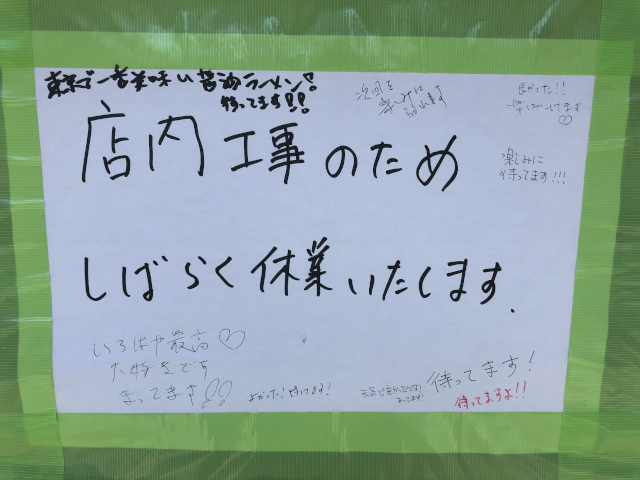 東京で一番美味い醤油ラーメン!!
待ってます!!
次回を
楽しみに
してます
良かった!!
楽しみにしてます
♡
楽しみに
待ってます!!!
店内工事のため
しばらく休業いたします.
いろはや最高♡
大好きです
まってます!!
よかった!待ってます!
元気で良かったです!
まってます!
待ってます!
待ってますよ!!